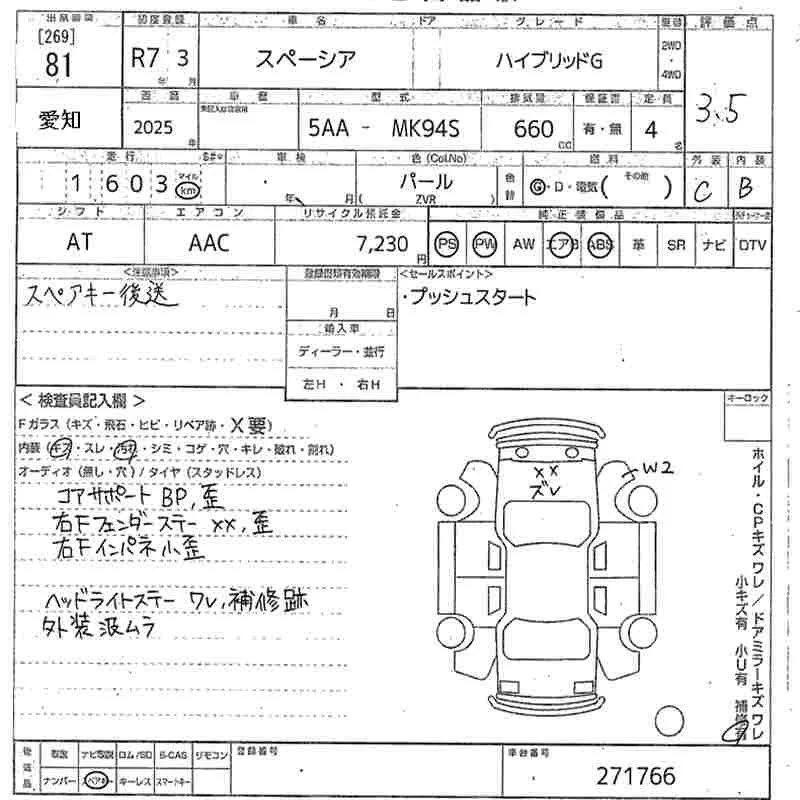 [269]
81
初度登録
R7 3
年 月
車名
スペーシア
ドア
グレード
ハイブリッドG
2WD
・
4WD
評価点
3.5
愛知
2025
年
車歴
型式
5AA - MK94S
排気量
660
CC
保証書
有・無
定員
4
名
走行
1 603
マイル
km
車検
・
年 月
色(Col.No)
パール
( ZVR )
色替
燃料
G・D・電気( その他 )
外装
C
内装
B
シフト
AT
エアコン
AAC
リサイクル預託金
7,230
円
純正装備品
PS PW AW エアB ABS 革 SR ナビ DTV
<注意事項>
スペアキー後送
登録書類有効期限
月 日
輸入車
ディーラー・並行
左H ・ 右H
<セールスポイント>
・プッシュスタート
<検査員記入欄>
Fガラス(キズ・飛石・ヒビ・リペア跡・X要)
内装(キズ・スレ・汚れ・シミ・コゲ・穴・キレ・破れ・割れ)
オーディオ(無し・穴)/タイヤ(スタッドレス)
コアサポート BP,歪
右Fフェンダーステー xx,歪
右Fインパネ小歪
ヘッドライトステー ワレ,補修跡
外装汲ムラ
xx
ズレ
W2
キーロック
ホイル・CPキズワレ/ドアミラーキズワレ
小キズ有 小U有 補修有
後送品
取説 ナビ取説 ロム/SD B-CAS リモコン
ナンバー スペアキー キーレス スマートキー
登録番号
車台番号
271766